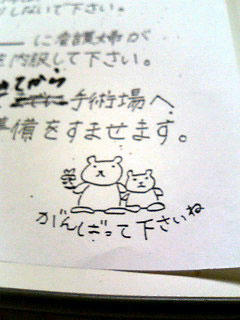 しないで下さい。
に看護婦が
を内服して下さい。
てから
手術場へ
準備をすませます。
がんばって下さいね